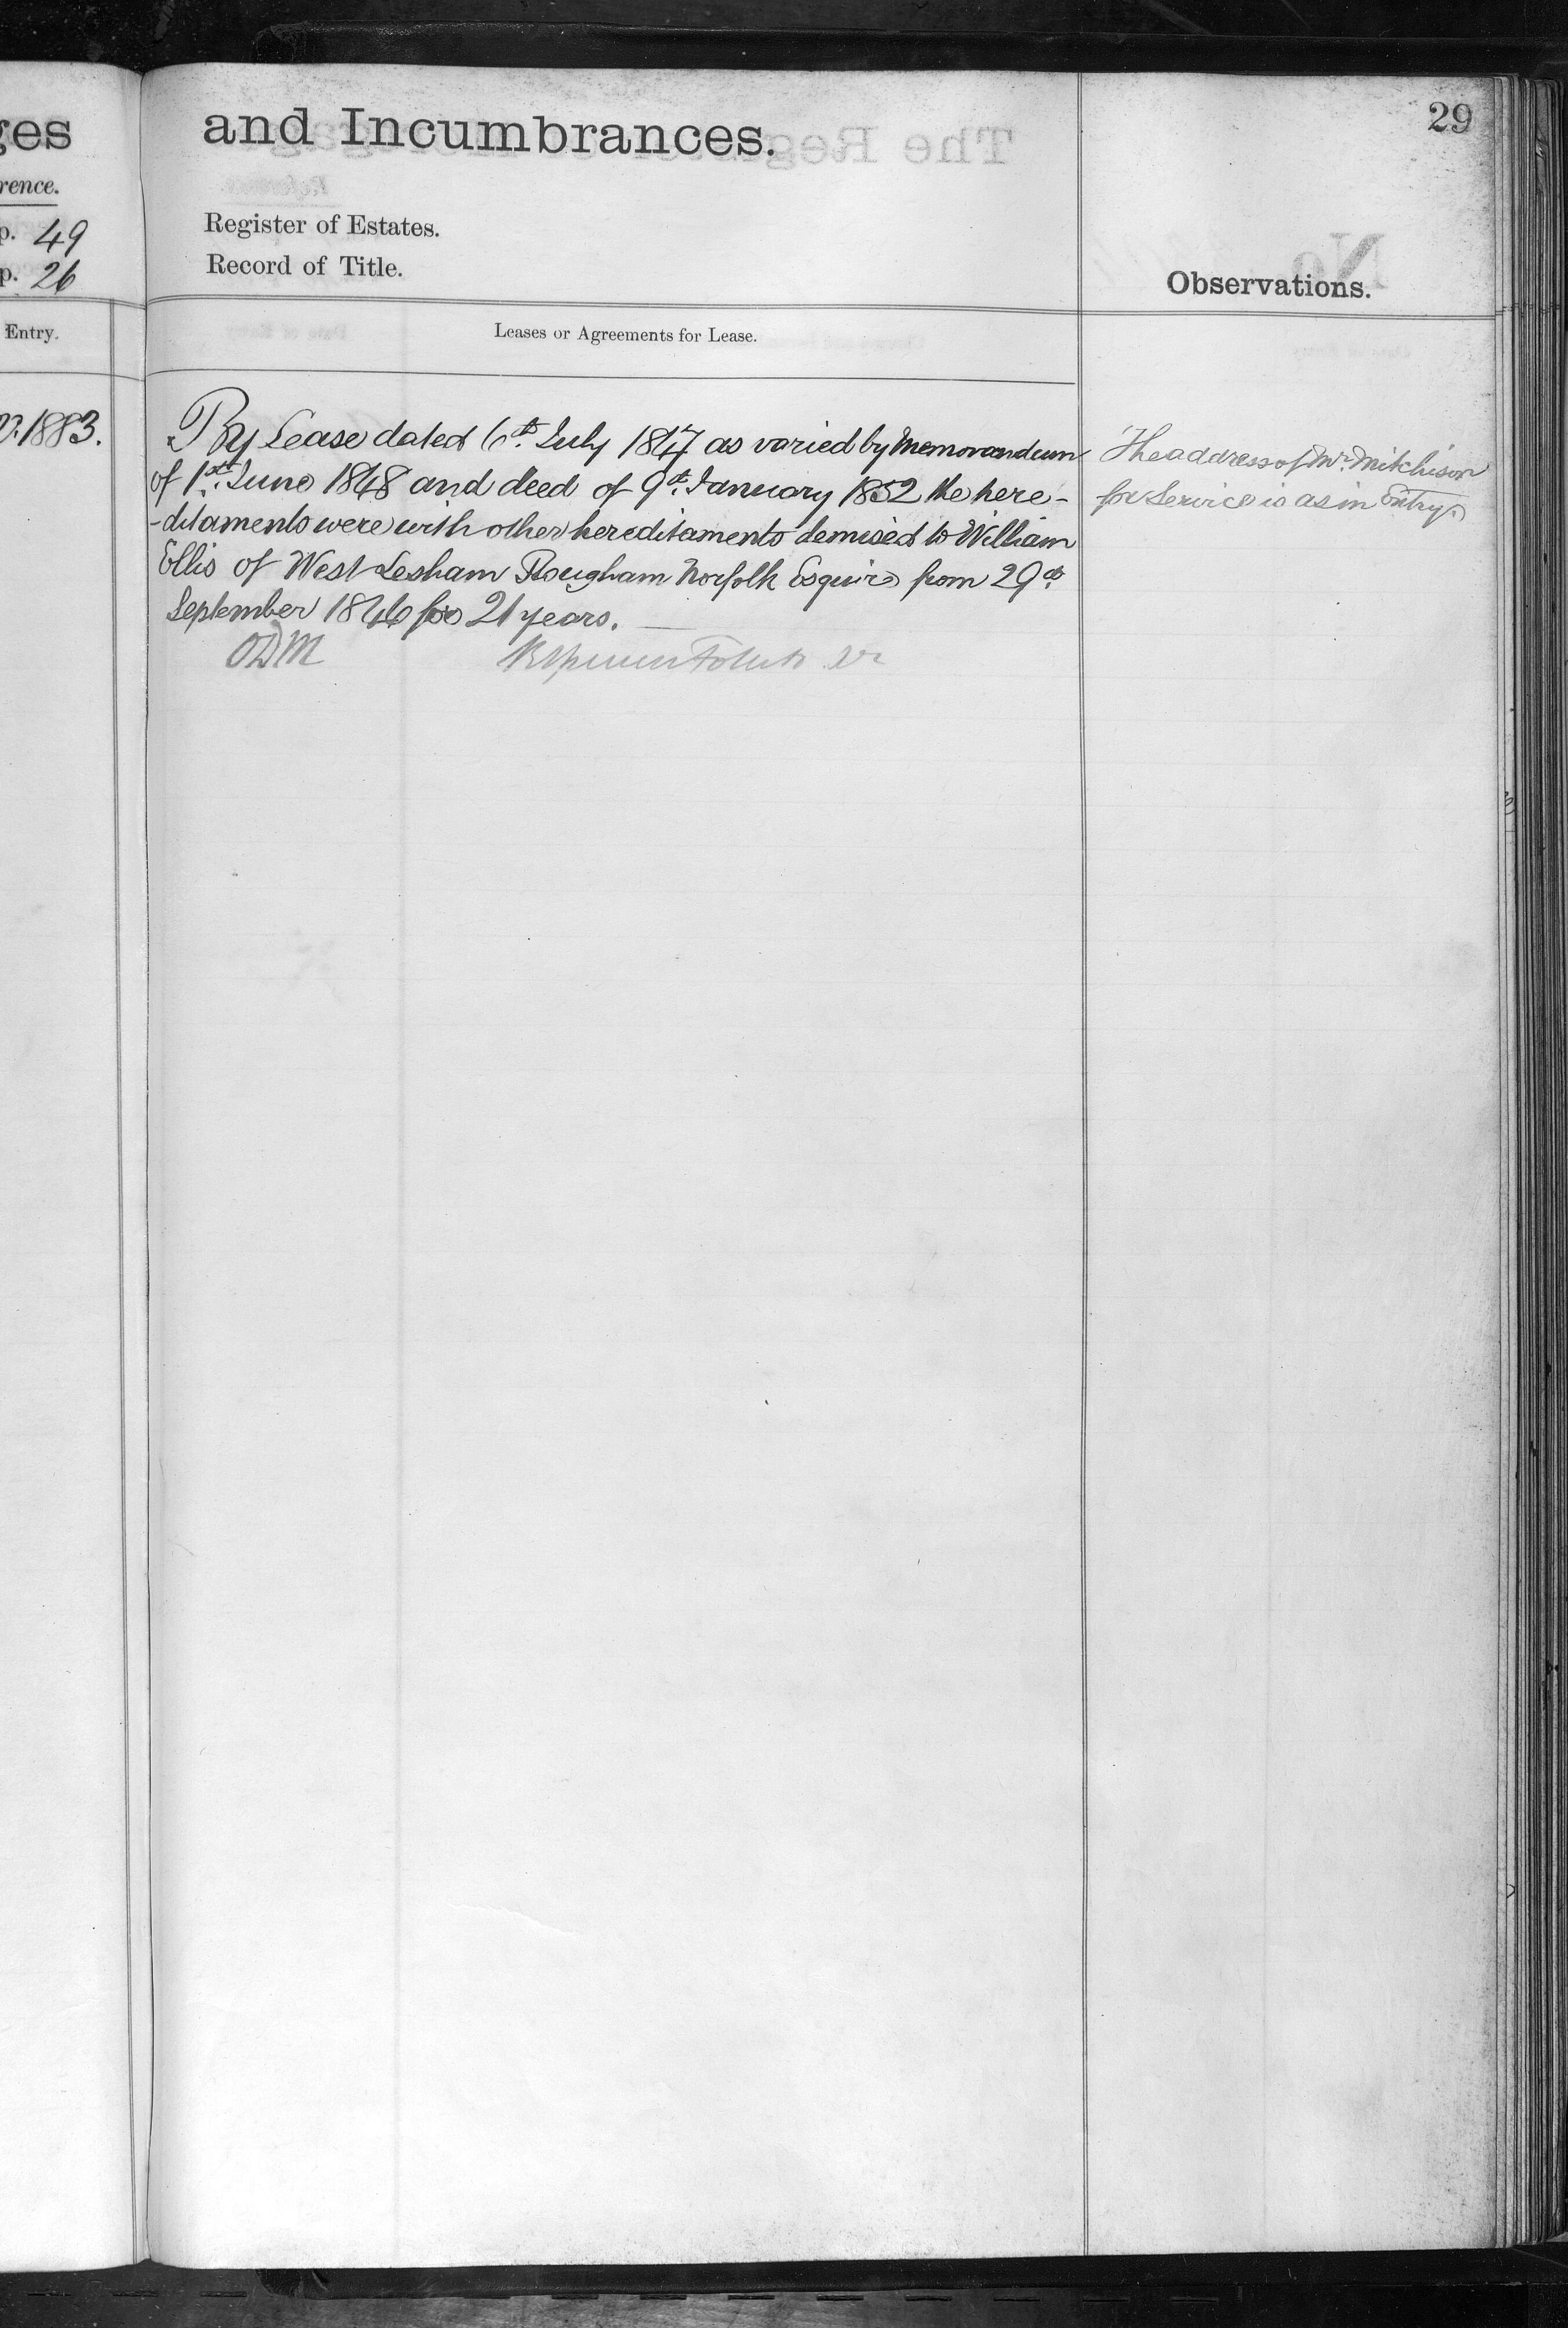 ges
rence.
p. 49
p. 26
Entry.
1883.
and Incumbrances.
29
Register of Estates.
Record of Title.
Observations.
Leases or Agreements for Lease.
By Lease dated 6th. July 1847 as varied by Memorandum
of 1st. June 1848 and deed of 9th. January 1852 the here-
-ditaments were with other hereditaments demised to William
Ellis of West Lesham Rougham Norfolk Esquire from 29th
September 1846 for 21 years.
ODM
The address of Mr. Mitchison
for Service is as in Entry.